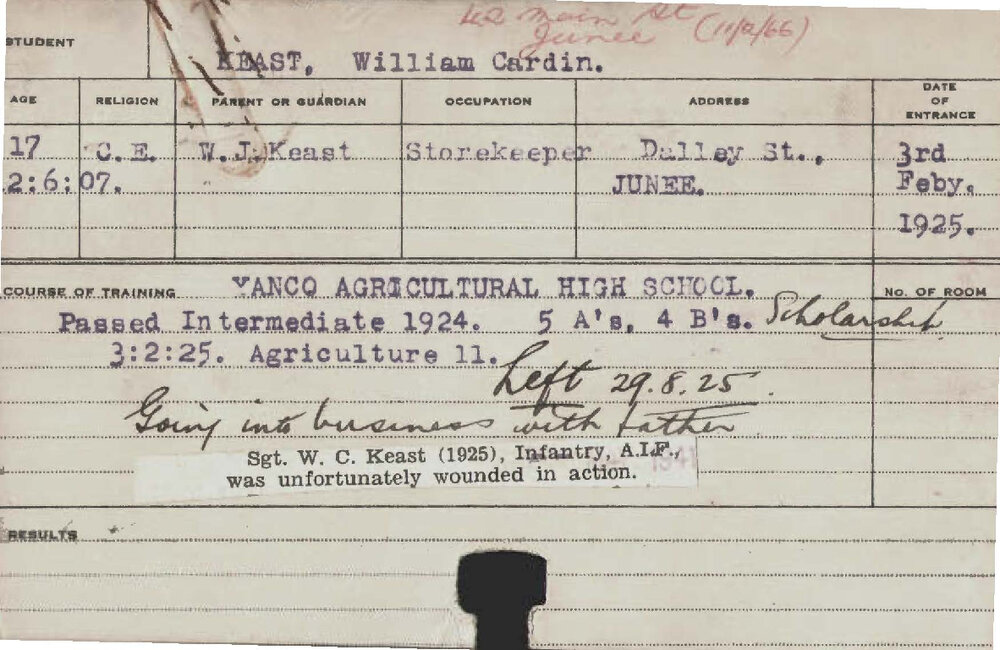 42 Main St
Junee (11/2/66)
STUDENT
KEAST, William Cardin.
AGE RELIGION PARENT OR GUARDIAN OCCUPATION ADDRESS DATE OF ENTRANCE
17 C.E. W.J. Keast Storekeeper Dalley St., 3rd
2:6:07. JUNEE. Feby.
1925.
COURSE OF TRAINING YANCO AGRICULTURAL HIGH SCHOOL. No. OF ROOM
Passed Intermediate 1924. 5 A's, 4 B's. Scholarship
3:2:25. Agriculture 11.
Left 29.8.25
Going into business with father
Sgt. W. C. Keast (1925), Infantry, A.I.F.,
was unfortunately wounded in action.
RESULTS